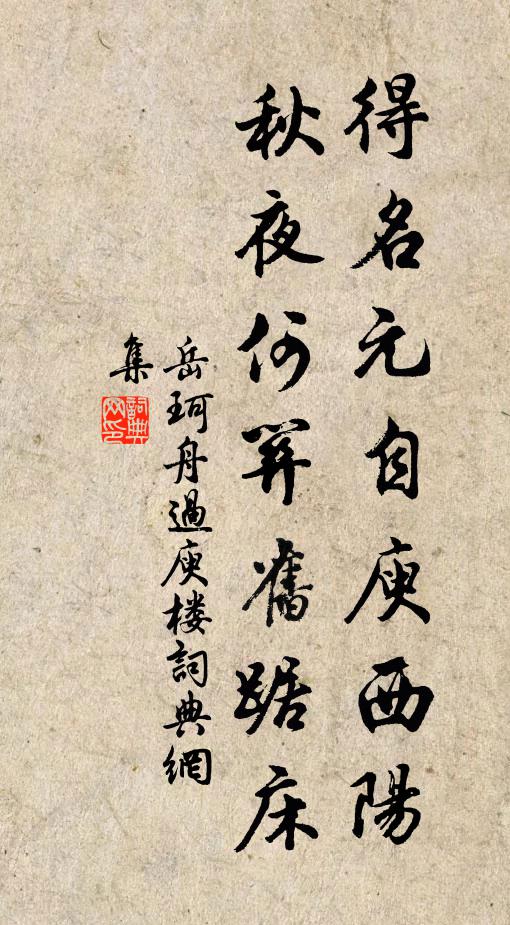 得名元自庾西陽
秋夜何笄舊踞床
岳珂舟過庾楼詞典網
集
詞典
网印